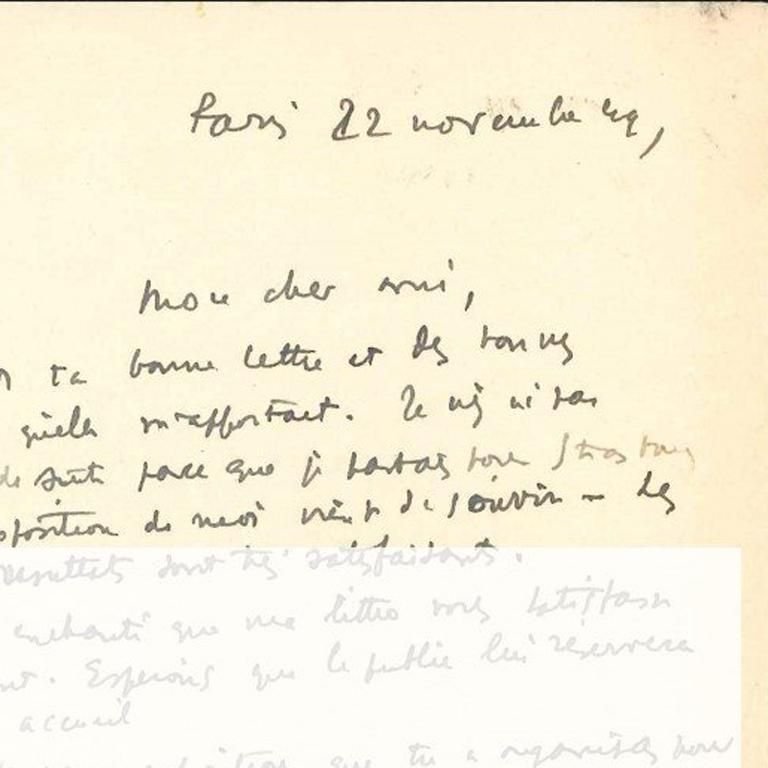 Paris 22 novembre 49,
Mon cher ami,
ta bonne lettre et des bonnes
qu'elle m'apportait. Je
de suite parce que je partais pour Strasbourg
de moi vient de s'ouvrir - Les
résultats sont très satisfaisants.
enchanté que ma litho vous
. Espérons que le public lui réservera
accueil
que tu a organisés pour